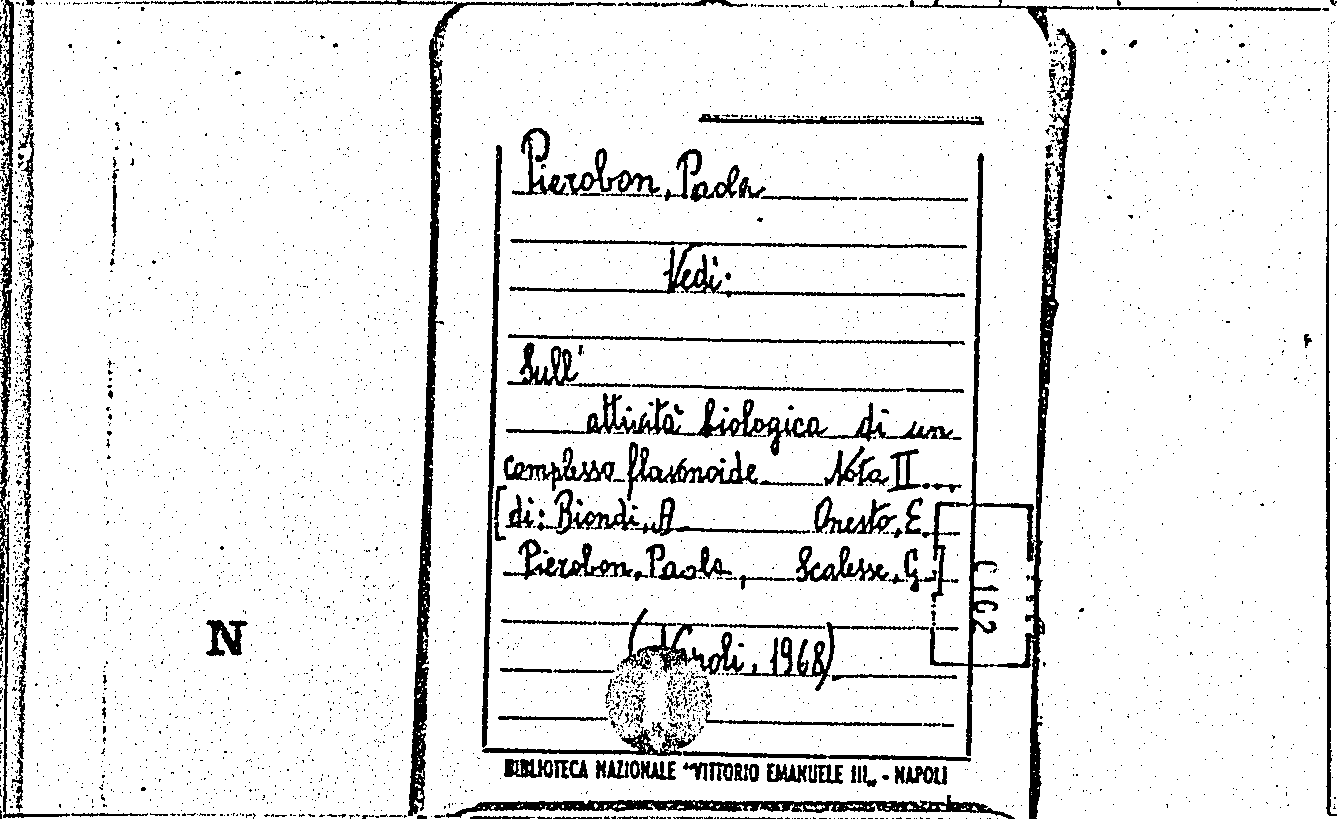 Pierobon, Paola
Vedi:
Sull'
attività biologica di un
complesso flavonoide Nota II...
[di: Biondi, A Onesto, E.
Pierobon, Paola, Scalesse, G.]
(Napoli, 1968)
C 162
N
BIBLIOTECA NAZIONALE "VITTORIO EMANUELE III„ - NAPOLI